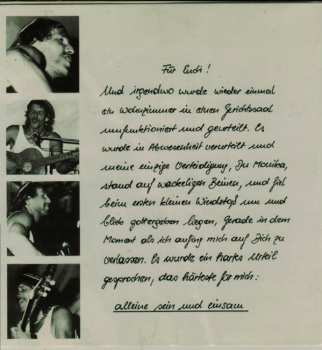 Für Euch!
Und irgendwo wurde wieder einmal
ein Wohnzimmer in einen Gerichtssaal
umfunktioniert und geurteilt. Es
wurde in Abwesenheit verurteilt und
meine einzige Verteidigung, Du Monika,
stand auf wackeligen Beinen, und fiel
beim ersten kleinen Windstoß um und
blieb gottergeben liegen, gerade in dem
Moment als ich anfing mich auf Dich zu
verlassen. Es wurde ein hartes Urteil
gesprochen, das härteste für mich:
alleine sein und einsam